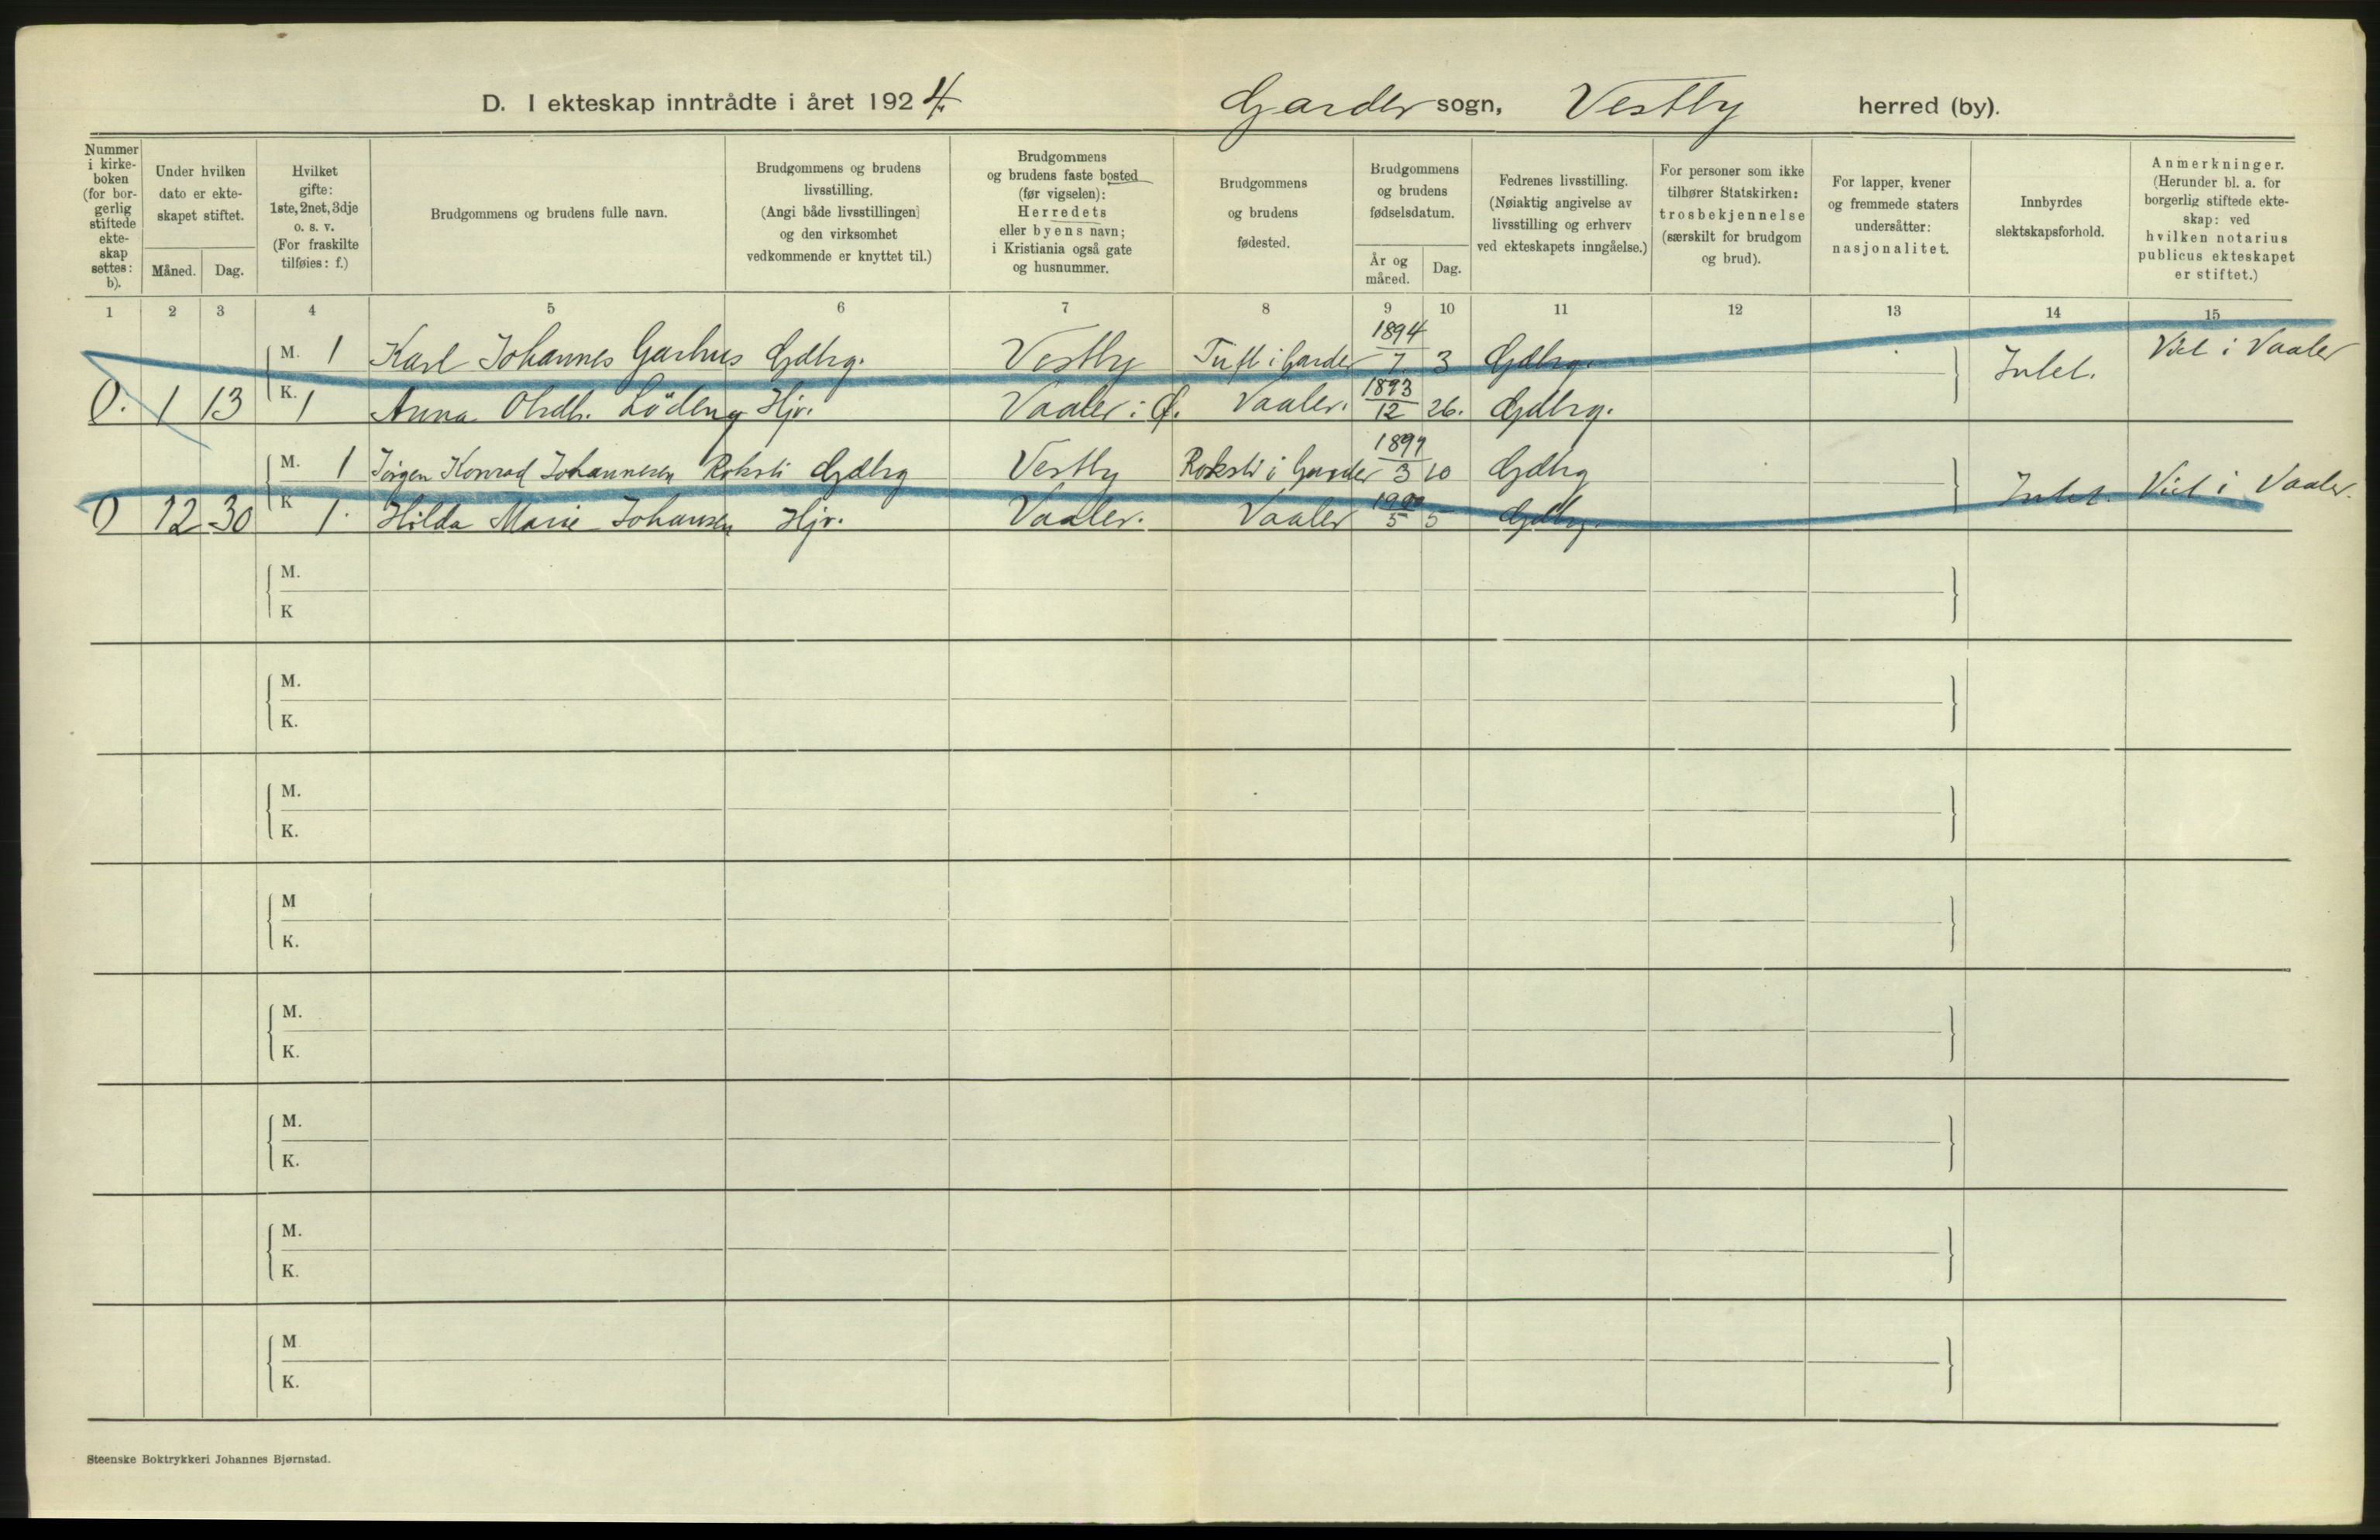 D. I ekteskap inntrådte i året 1924. Garder sogn, Vestby herred (by).
Nummer i kirke-boken (for bor-gerlig stiftede ekte-skap settes: b).
Under hvilken dato er ekte-skapet stiftet.
Måned. Dag.
Hvilket gifte: 1ste, 2net, 3dje o. s. v. (For fraskilte tilføies: f.)
Brudgommens og brudens fulle navn.
Brudgommens og brudens livsstilling. (Angi både livsstillingen og den virksomhet vedkommende er knyttet til.)
Brudgommens og brudens faste bosted (før vigselen): Herredets eller byens navn; i Kristiania også gate og husnummer.
Brudgommens og brudens fødested.
Brudgommens og brudens fødselsdatum.
År og måned. Dag.
Fedrenes livsstilling. (Nøiaktig angivelse av livsstilling og erhverv ved ekteskapets inngåelse.)
For personer som ikke tilhører Statskirken: trosbekjennelse (særskilt for brudgom og brud).
For lapper, kvener og fremmede staters undersåtter: nasjonalitet.
Innbyrdes slektskapsforhold.
Anmerkninger. (Herunder bl. a. for borgerlig stiftede ekte-skap: ved hvilken notarius publicus ekteskapet er stiftet.)
1 2 3 4 5 6 7 8 9 10 11 12 13 14 15
M. 1 Karl Johannes Garhus Gdbrg. Vestby Tuft i Garder 1894 7. 3 Gdbrg. Intet. Viet i Vaaler
0. 1 13 K. 1 Anna Løden Hjv. Vaaler i Ø. Vaaler. 1893 12 26. Gdbrg.
M. 1 Jørgen Konrad Johannesen Roksti Gdbrg Vestby Roksti i Garder 3 10 Gdbrg Intet. Viet i Vaaler.
0 12 30 K 1. Hilda Marie Johansen Hjv. Vaaler. Vaaler 1900 5 5 Gdbrg.
M.
K
M.
K.
M.
K.
M
K.
M.
K.
M.
K.
M.
K.
M
K.
Steenske Boktrykkeri Johannes Bjørnstad.